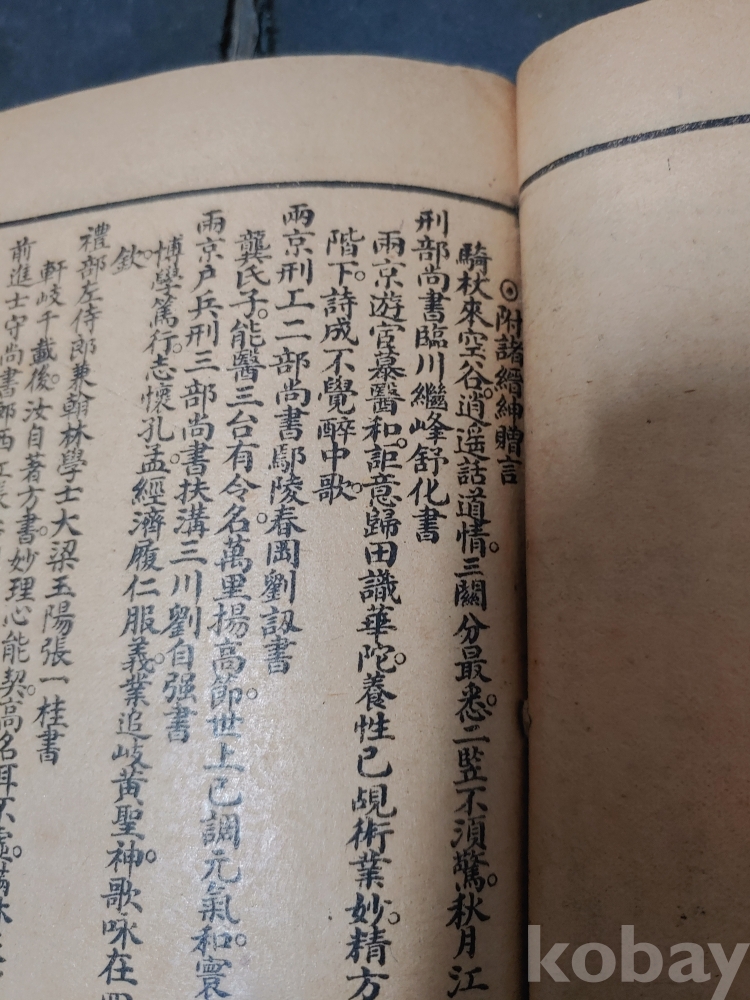 ⊙附諸縉紳贈言
騎杖來空谷。逍遥話道情。三關分最悉。二竪不須驚。秋月江
刑部尚書臨川繼峰舒化書
兩京遊宦慕醫和。詎意歸田識華陀。養性已覘術業妙。精方
階下。詩成不覺醉中歌。
兩京刑工二部尚書鄢陵春岡劉訒書
龔氏子。能醫三台有令名。萬里揚高節。世上已調元氣。和寰
兩京户兵刑三部尚書扶溝三川劉自强書
博學篤行。志懷孔孟經濟履仁服義。業追岐黄聖神。歌咏在
欽。
禮部左侍郎兼翰林學士大梁玉陽張一桂書
軒岐千載後。汝自著方書。妙理心能契。高名耳不虛。滿林
前進士守尚書郎西江長
kobay